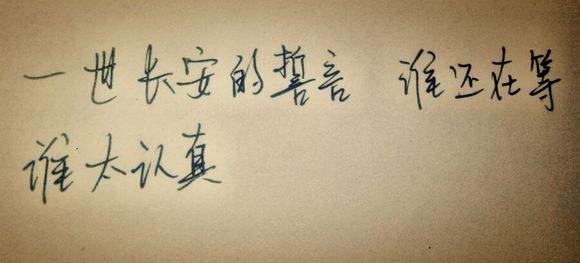 一世长安的誓言 谁还在等
谁太认真